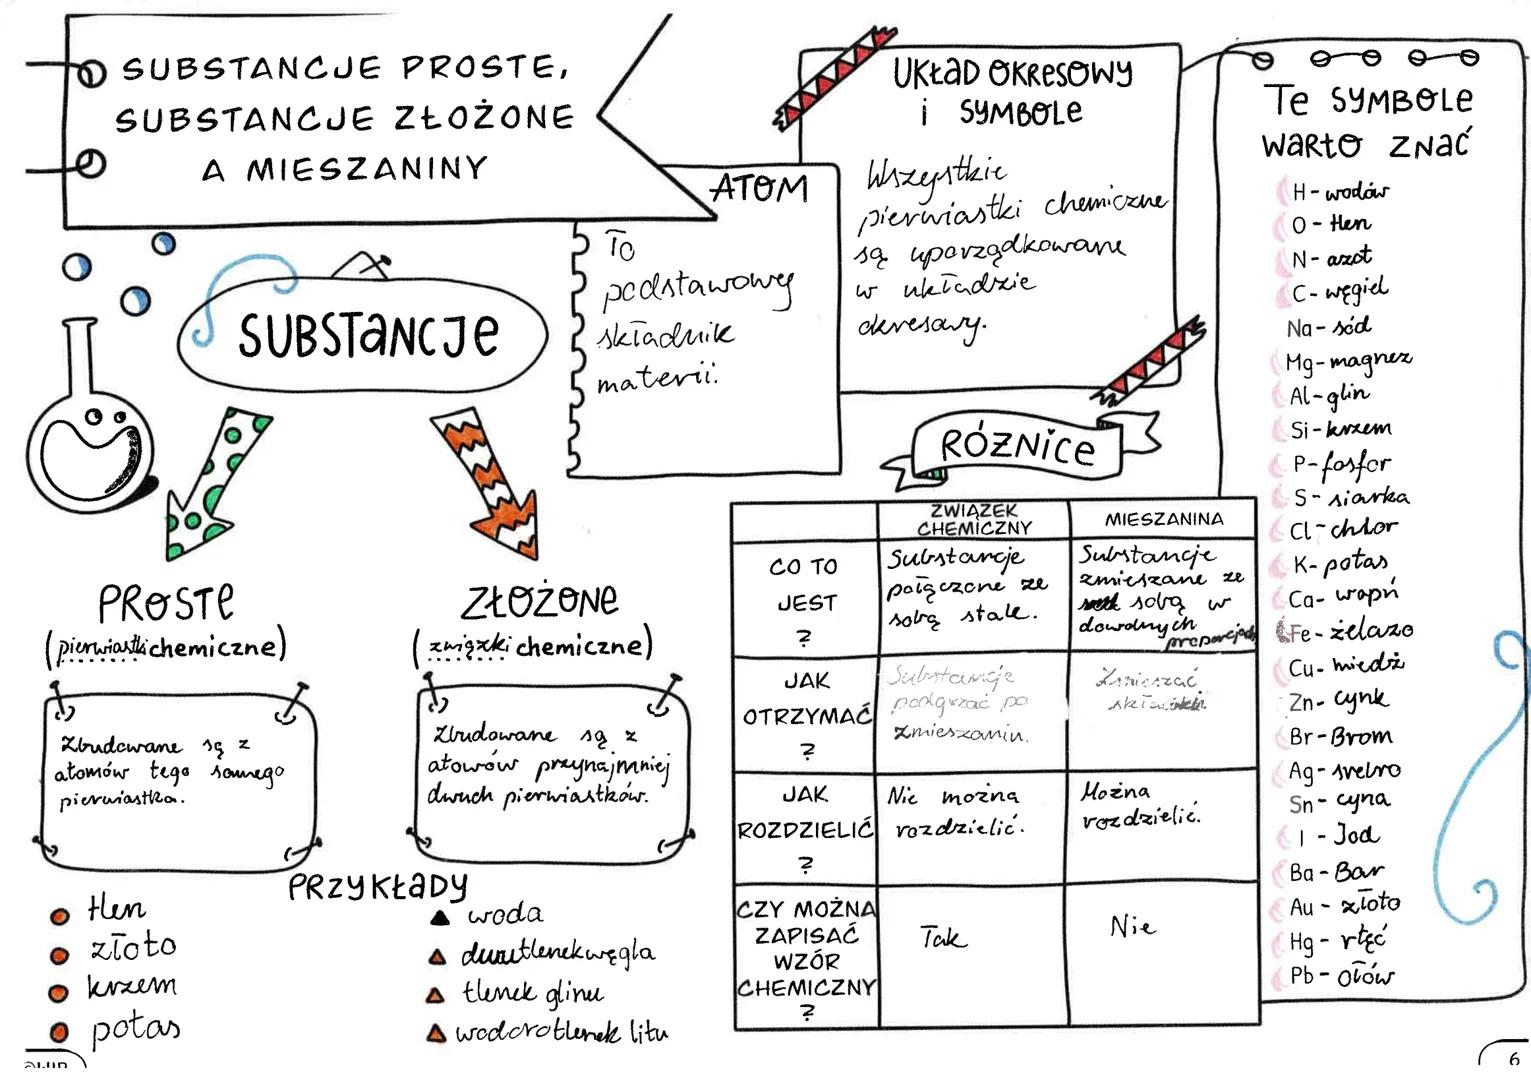 SUBSTANCJE PROSTE,
SUBSTANCJE ZŁOŻONE
A MIESZANINY
SUBSTANCJE
PROSTE
(pierwiastki chemiczne)
Zbudowane są z
atomów tego samego
pierwiastka.
ZŁOŻONE
(związki chemiczne)
Zbudowane są z
atomów przynajmniej
dwuch pierwiastków.
PRZYKŁADY
tlen
złoto
krzem
potas
woda
dwutlenek węgla
tlenek glinu
wodorotlenek litu
ATOM
To
podstawowy
składnik
materii.
UKŁAD OKRESOWY
i SYMBOLE
Wszystkie
pierwiastki chemiczne
są uporządkowane
w układzie
okresowy.
RÓŻNICE
ZWIĄZEK
CHEMICZNY
MIESZANINA
CO TO
JEST
?
Substancje
połączone ze
sobą stale.
Substancje
zmieszane ze
sobą w
dowolnych
proporcjach
JAK
OTRZYMAĆ
?
Substancje
podgrzać po
zmieszaniu.
Zmieszać
składniki.
JAK
ROZDZIELIĆ
?
Nie można
rozdzielić.
Można
rozdzielić.
CZY MOŻNA
ZAPISAĆ
WZÓR
CHEMICZNY
?
Tak
Nie
Te SYMBOLE
WARTO ZNAĆ
H - wodór
O - tlen
N - azot
C - węgiel
Na - sód
Mg - magnez
Al - glin
Si - krzem
P - fosfor
S - siarka
Cl - chlor
K - potas
Ca - wapń
Fe - żelazo
Cu - miedź
Zn - cynk
Br - Brom
Ag - srebro
Sn - cyna
I - Jod
Ba - Bar
Au - złoto
Hg - rtęć
Pb - ołów
6